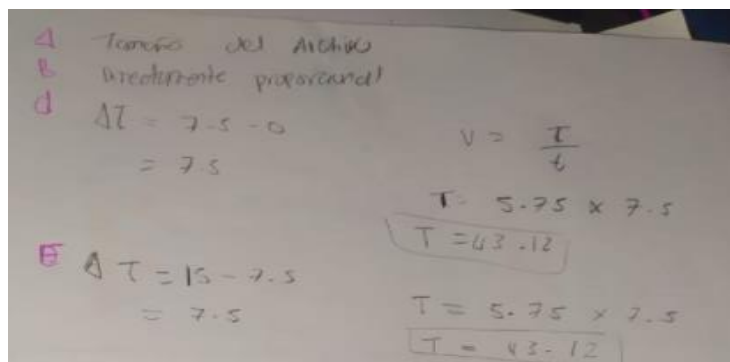 A Tamaño del Archivo
B Directamente proporcional
d ΔT = 7.5 - 0
= 7.5
V = T/t
T = 5.75 x 7.5
T = 43.12
E ΔT = 15 - 7.5
= 7.5
T = 5.75 x 7.5
T = 43.12